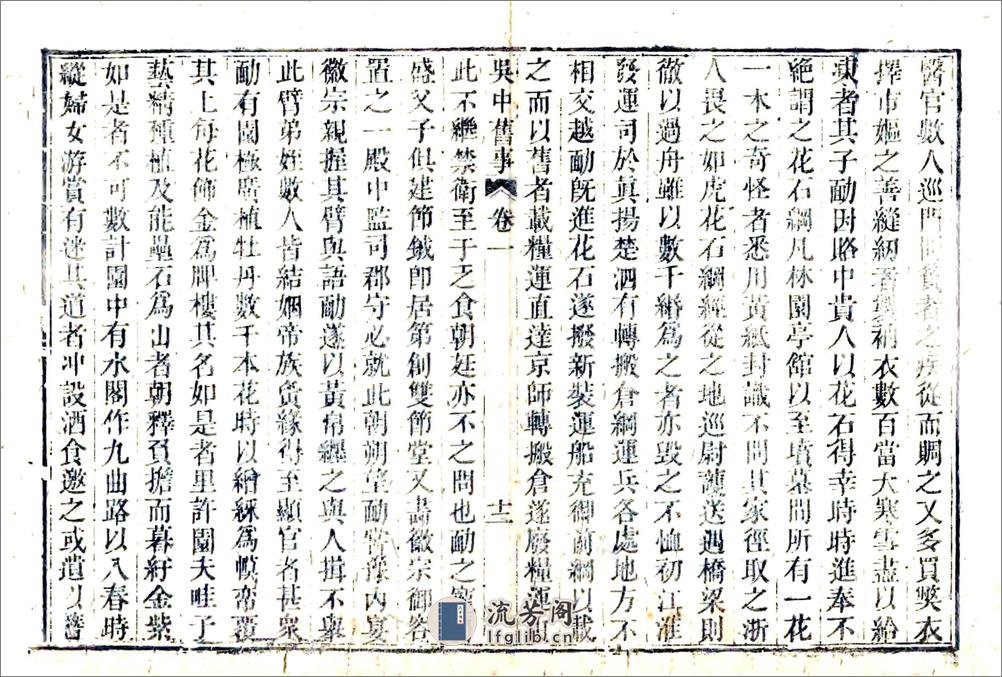 醫官數人巡門問貧者之疾從而賙之又多買獘衣
擇市嫗之善縫紉者製衲衣數百當大寒雪盡以給
凍者其子勔因賂中貴人以花石得幸時時進奉不
絕謂之花石綱凡林園亭館以至墳墓間所有一花
一木之奇怪者悉用黃紙封識不問其家徑取之浙
人畏之如虎花石綱經從之地巡尉護送遇橋梁則
徹以過舟雖以數千緡為之者亦毀之不恤初江淮
發運司於真揚楚泗有轉搬倉綱運兵各處地方不
相交越勔旣進花石遂撥新裝運船充御前綱以載
之而以舊者載糧運直達京師轉搬倉遂廢糧運
吳中舊事 卷一 十二
此不繼禁衛至于乏食朝廷亦不之問也勔之
盛父子俱建節鉞卽居第創雙節堂又畵徽宗御容
置之一殿中監司郡守必就此朝朔望勔嘗豫內宴
徽宗親握其臂與語勔遂以黃帛纏之與人揖不舉
此臂弟姪數人皆結姻帝族夤緣得至顯官者甚衆
勔有園極廣植牡丹數千本花時以繒綵為幙帟覆
其上每花飾金為牌標其名如是者里許園夫畦子
藝精種植及能疊石為山者朝釋負擔而暮紆金紫
如是者不可數計園中有水閣作九曲路以入春時
縱婦女游賞有迷其道者冲設酒食邀之或遺以簪
流芳阁
lfglib.cn